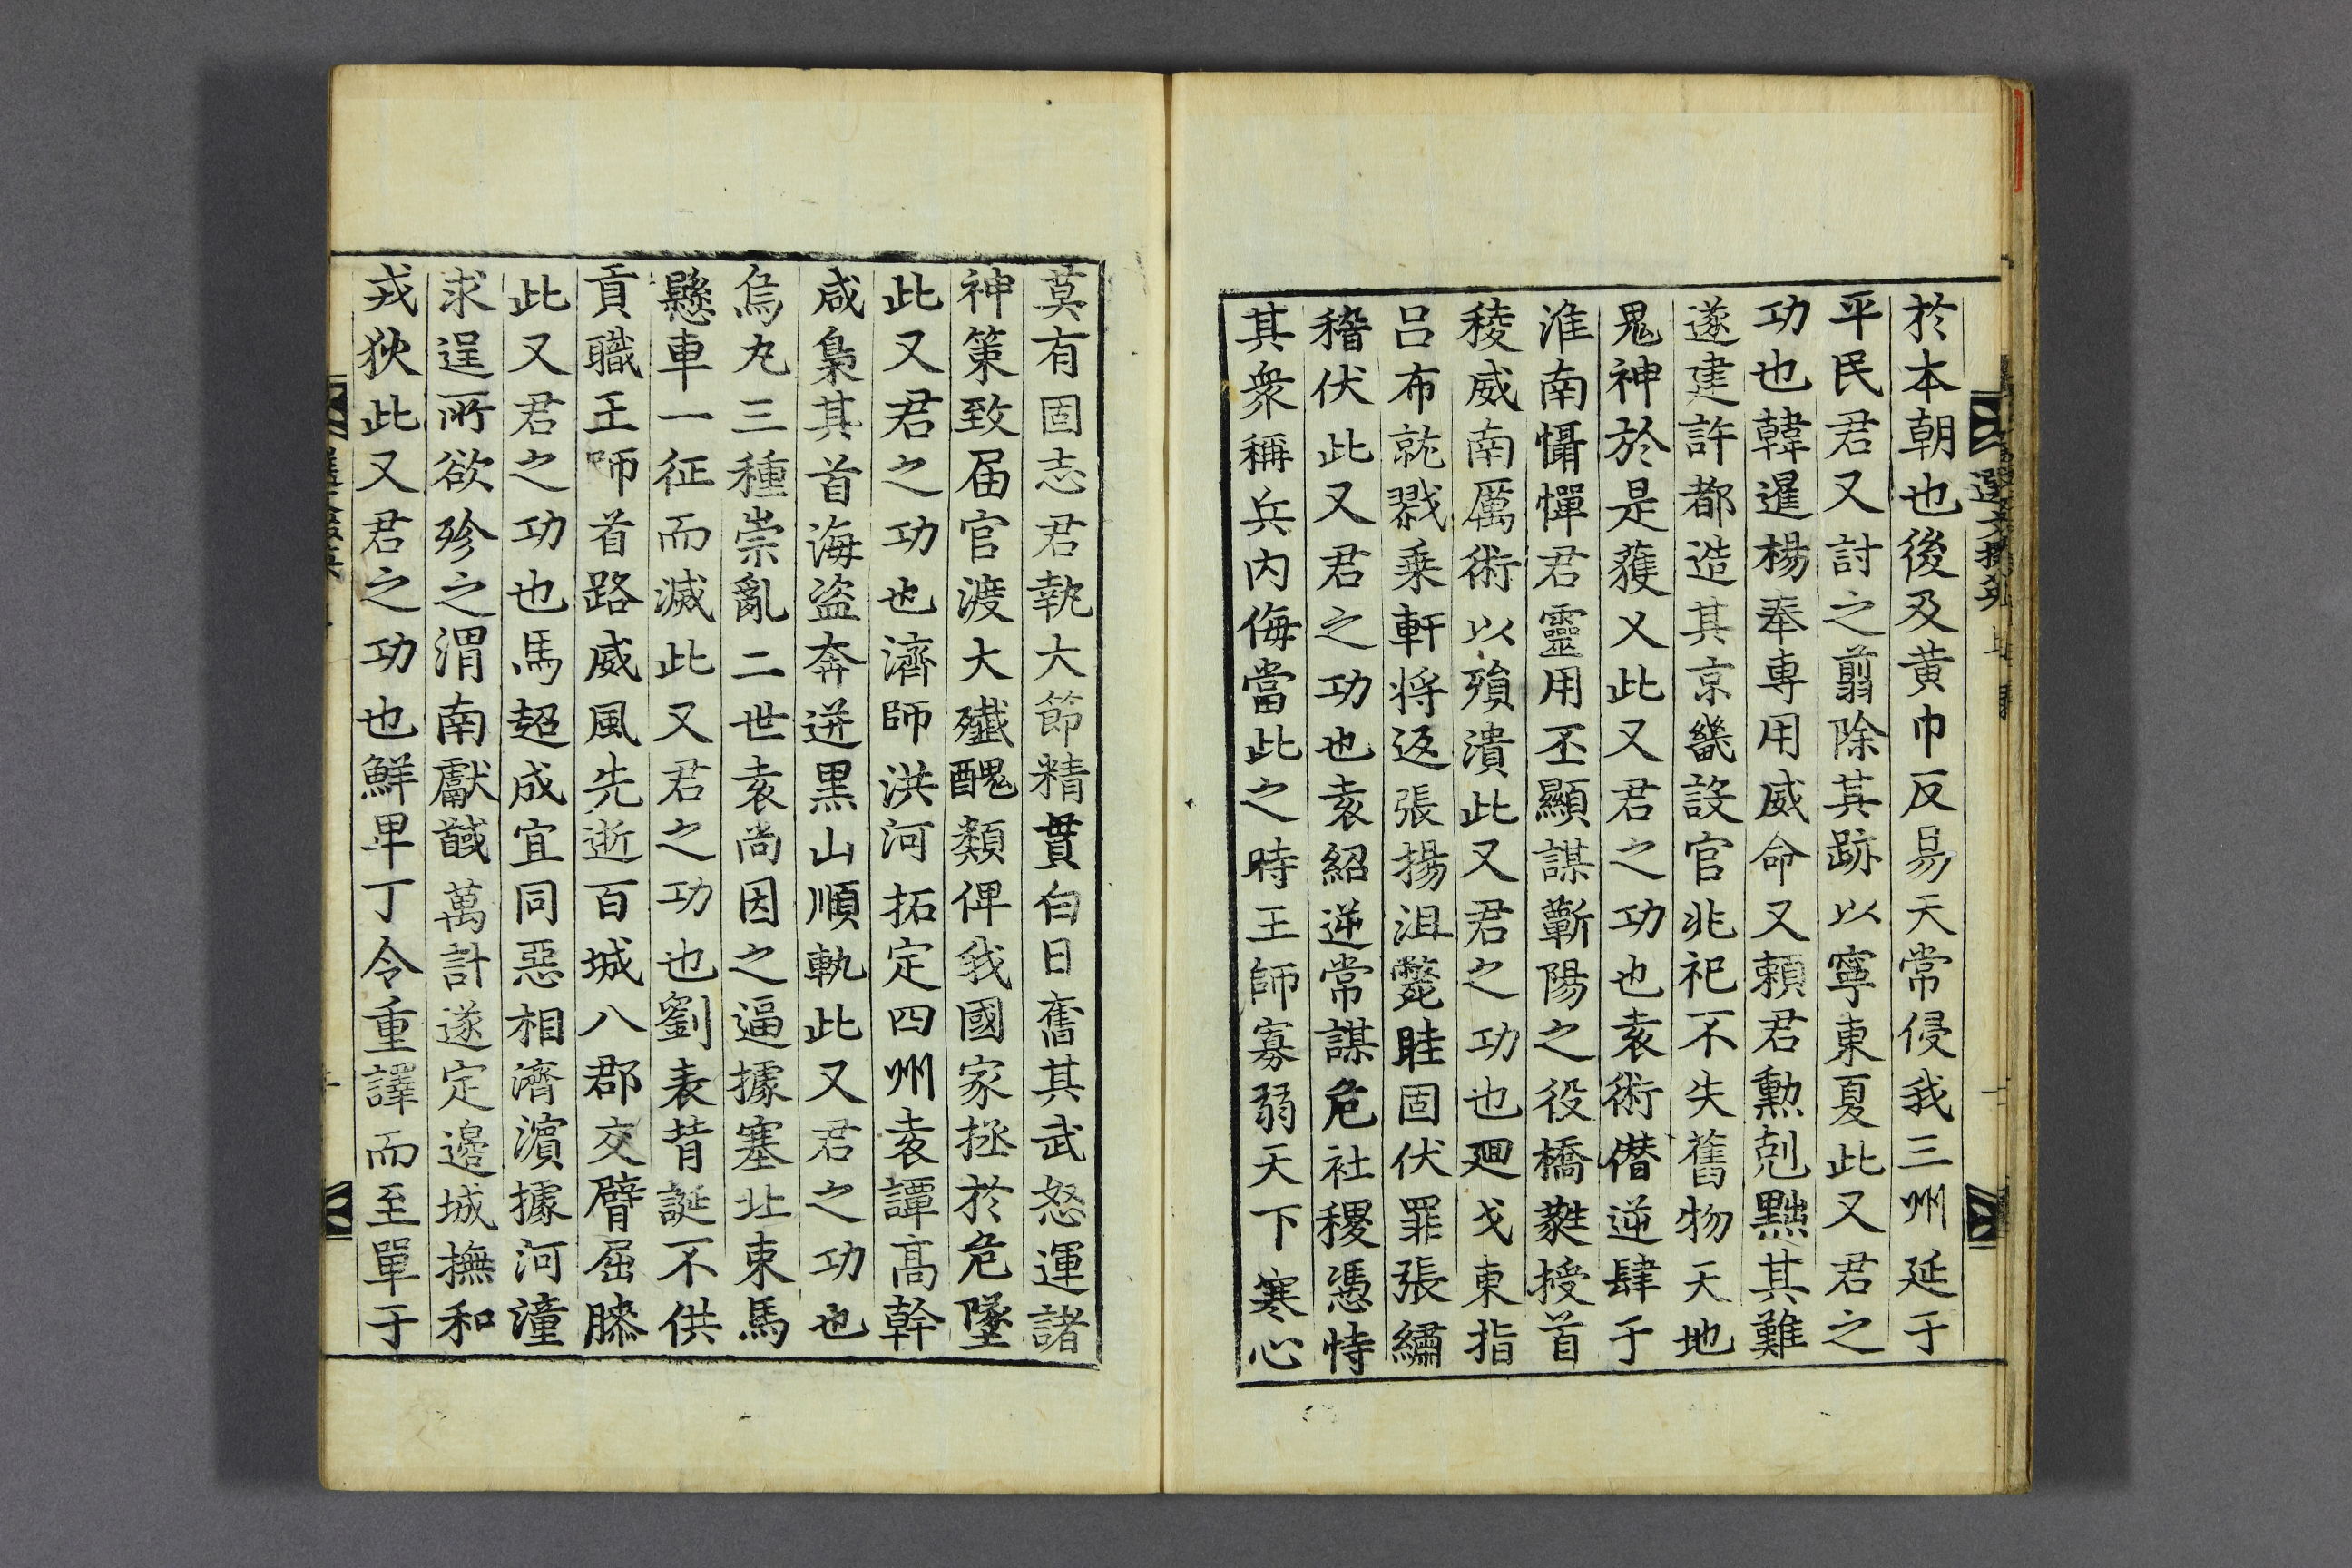 於本朝也後及黄巾反易天常侵我三州延于
平民君又討之翦除其跡以寧東夏此又君之
功也韓暹楊奉専用威命又頼君勲剋黜其難
遂建許都造其京畿設官兆祀不失舊物天地
鬼神於是獲乂此又君之功也袁術僣逆肆于
淮南懾憚君靈用丕顯謀蘄陽之役橋蕤授首
稜威南厲術以殞潰此又君之功也廻戈東指
呂布就戮乗軒将返張揚沮斃眭固伏罪張繡
稽伏此又君之功也袁紹逆常謀危社稷憑恃
其衆稱兵内侮當此之時王師寡弱天下寒心
莫有固志君執大節精貫白日奮其武怒運諸
神策致届官渡大殱醜類俾我國家拯於危墜
此又君之功也濟師洪河拓定四州袁譚高幹
咸梟其首海盗奔迸黒山順軌此又君之功也
烏丸三種崇亂二世袁尚因之逼據塞北束馬
懸車一征而滅此又君之功也劉表背誕不供
貢職王師首路威風先逝百城八郡交臂屈膝
此又君之功也馬超成宜同惡相濟濵據河潼
求逞所欲殄之渭南獻馘萬計遂定邊城撫和
戎狄此又君之功也鮮卑丁令重譯而至單于